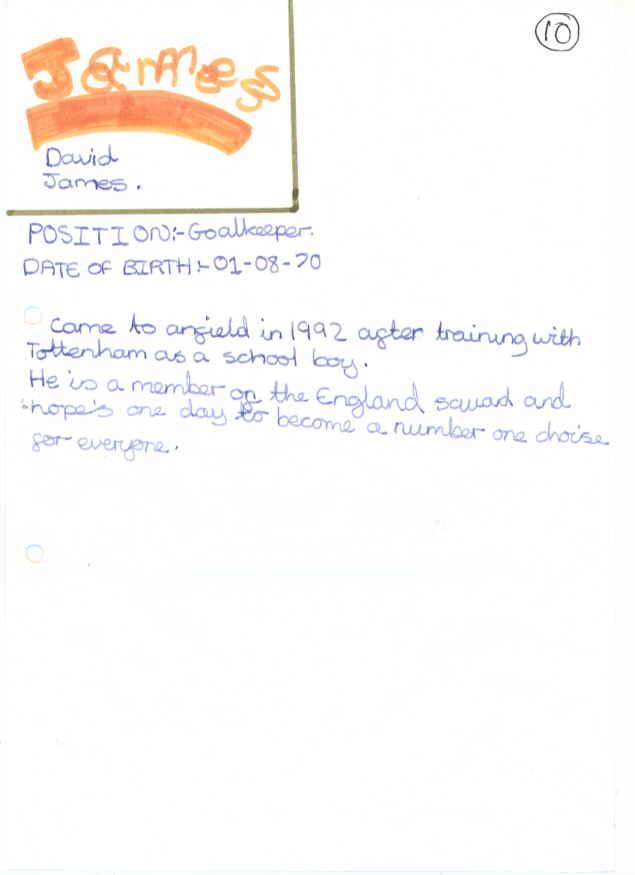 10
James
David
James.
POSITION:-Goalkeeper.
DATE OF BIRTH:-01-08-70
Came to anfield in 1992 after training with
Tottenham as a school boy.
He is a member on the England squad and
hope's one day to become a number one choise
for everyone.